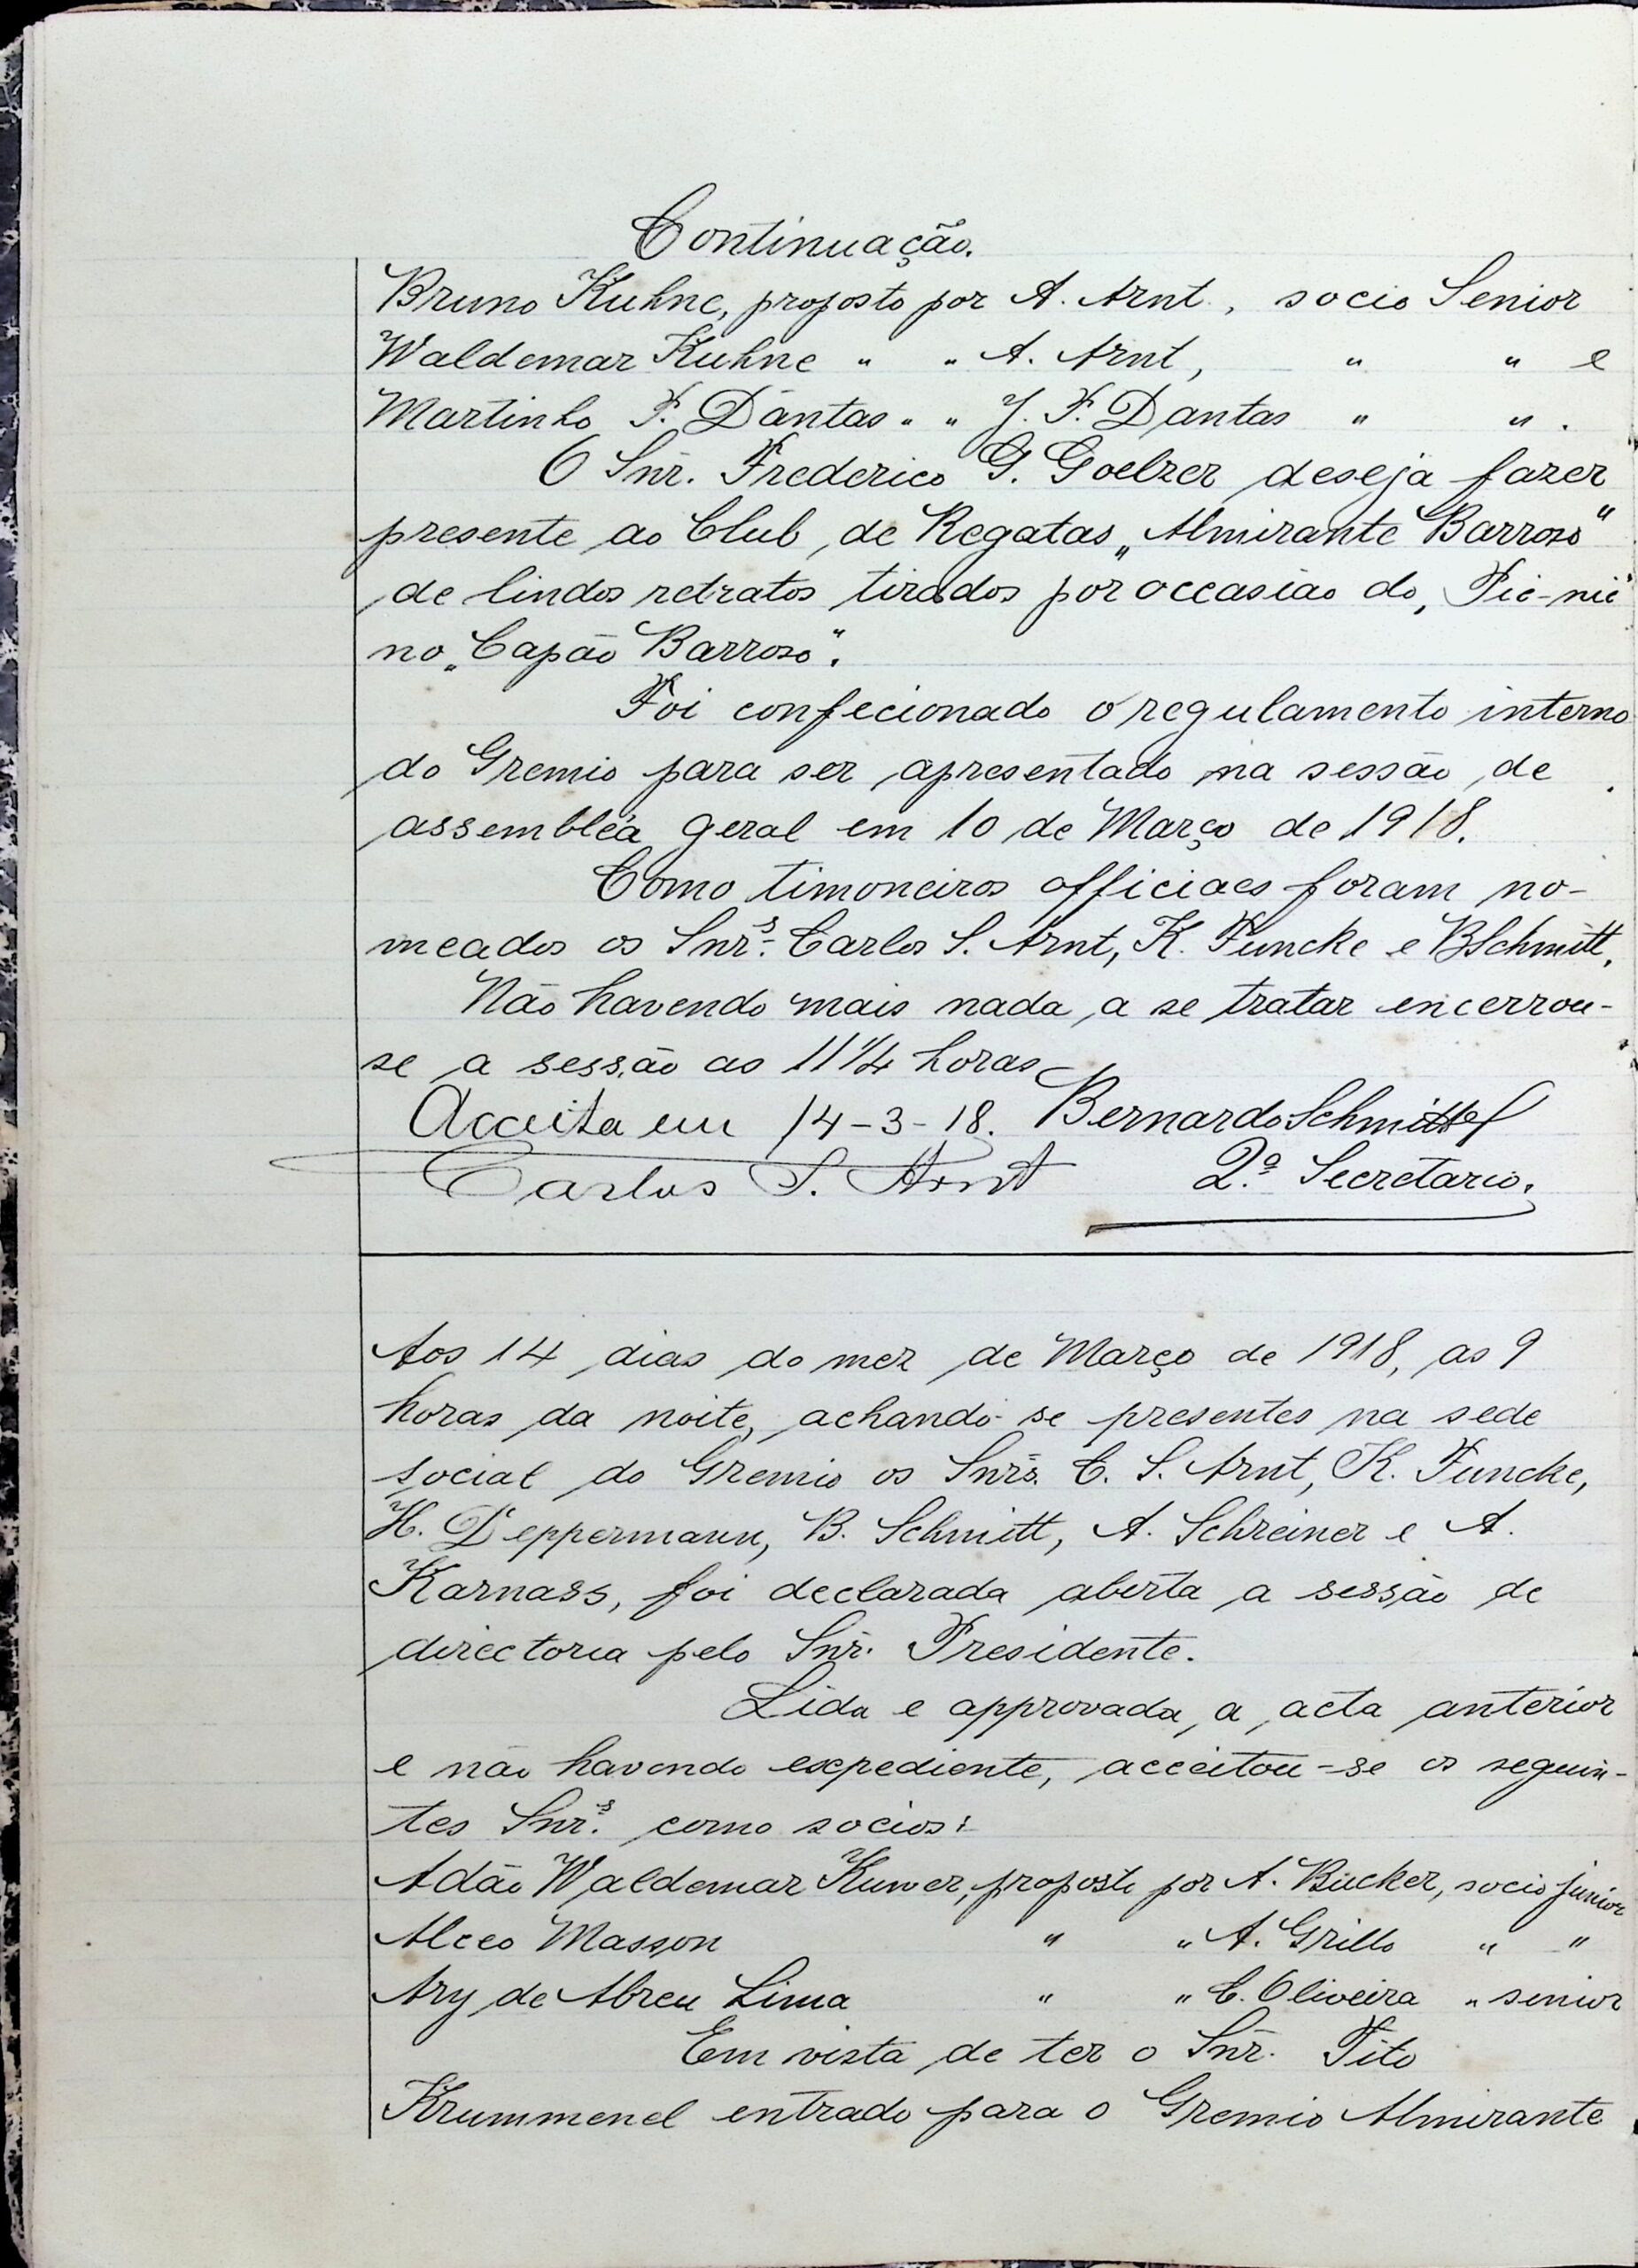 Continuação.
Bruno Kuhne, proposto por A. Arnt., socio Senior
Waldemar Kuhne " " A. Arnt, " " e
Martinho F. Dantas " " J. F. Dantas " ".
O Snr. Frederico G. Goelzer deseja fazer
presente ao Club de Regatas „Almirante Barroso"
de lindos retratos tirados por occasião do „Pic-nic"
no „Capão Barroso".
Foi confecionado o regulamento interno
do Gremio para ser apresentado na sessão de
assembléa geral em 10 de Março de 1918.
Como timoneiros officiaes foram no-
meados os Snrs. Carlos S. Arnt, K. Funcke e B Schmitt.
Não havendo mais nada a se tratar encerrou-
se a sessão as 11 1/4 horas
Acceita em 14-3-18. Bernardo Schmitt
Carlos S. Arnt 2º Secretario.
Aos 14 dias do mez de Março de 1918, as 9
horas da noite, achando-se presentes na sede
social do Gremio os Snrs. C. S. Arnt, K. Funcke,
H. Deppermann, B. Schmitt, A. Schreiner e A.
Karnass, foi declarada aberta a sessão de
directoria pelo Snr. Presidente.
Lida e approvada a acta anterior
e não havendo expediente, acceitou-se os seguin-
tes Snrs. como socios:
Adão Waldemar Kuwer, proposto por A. Bücker, socio junior
Alceo Masson " " A. Grillo " "
Ary de Abreu Lima " " C. Oliveira " senior
Em vista de ter o Snr. Tito
Krummenel entrado para o Gremio Almirante